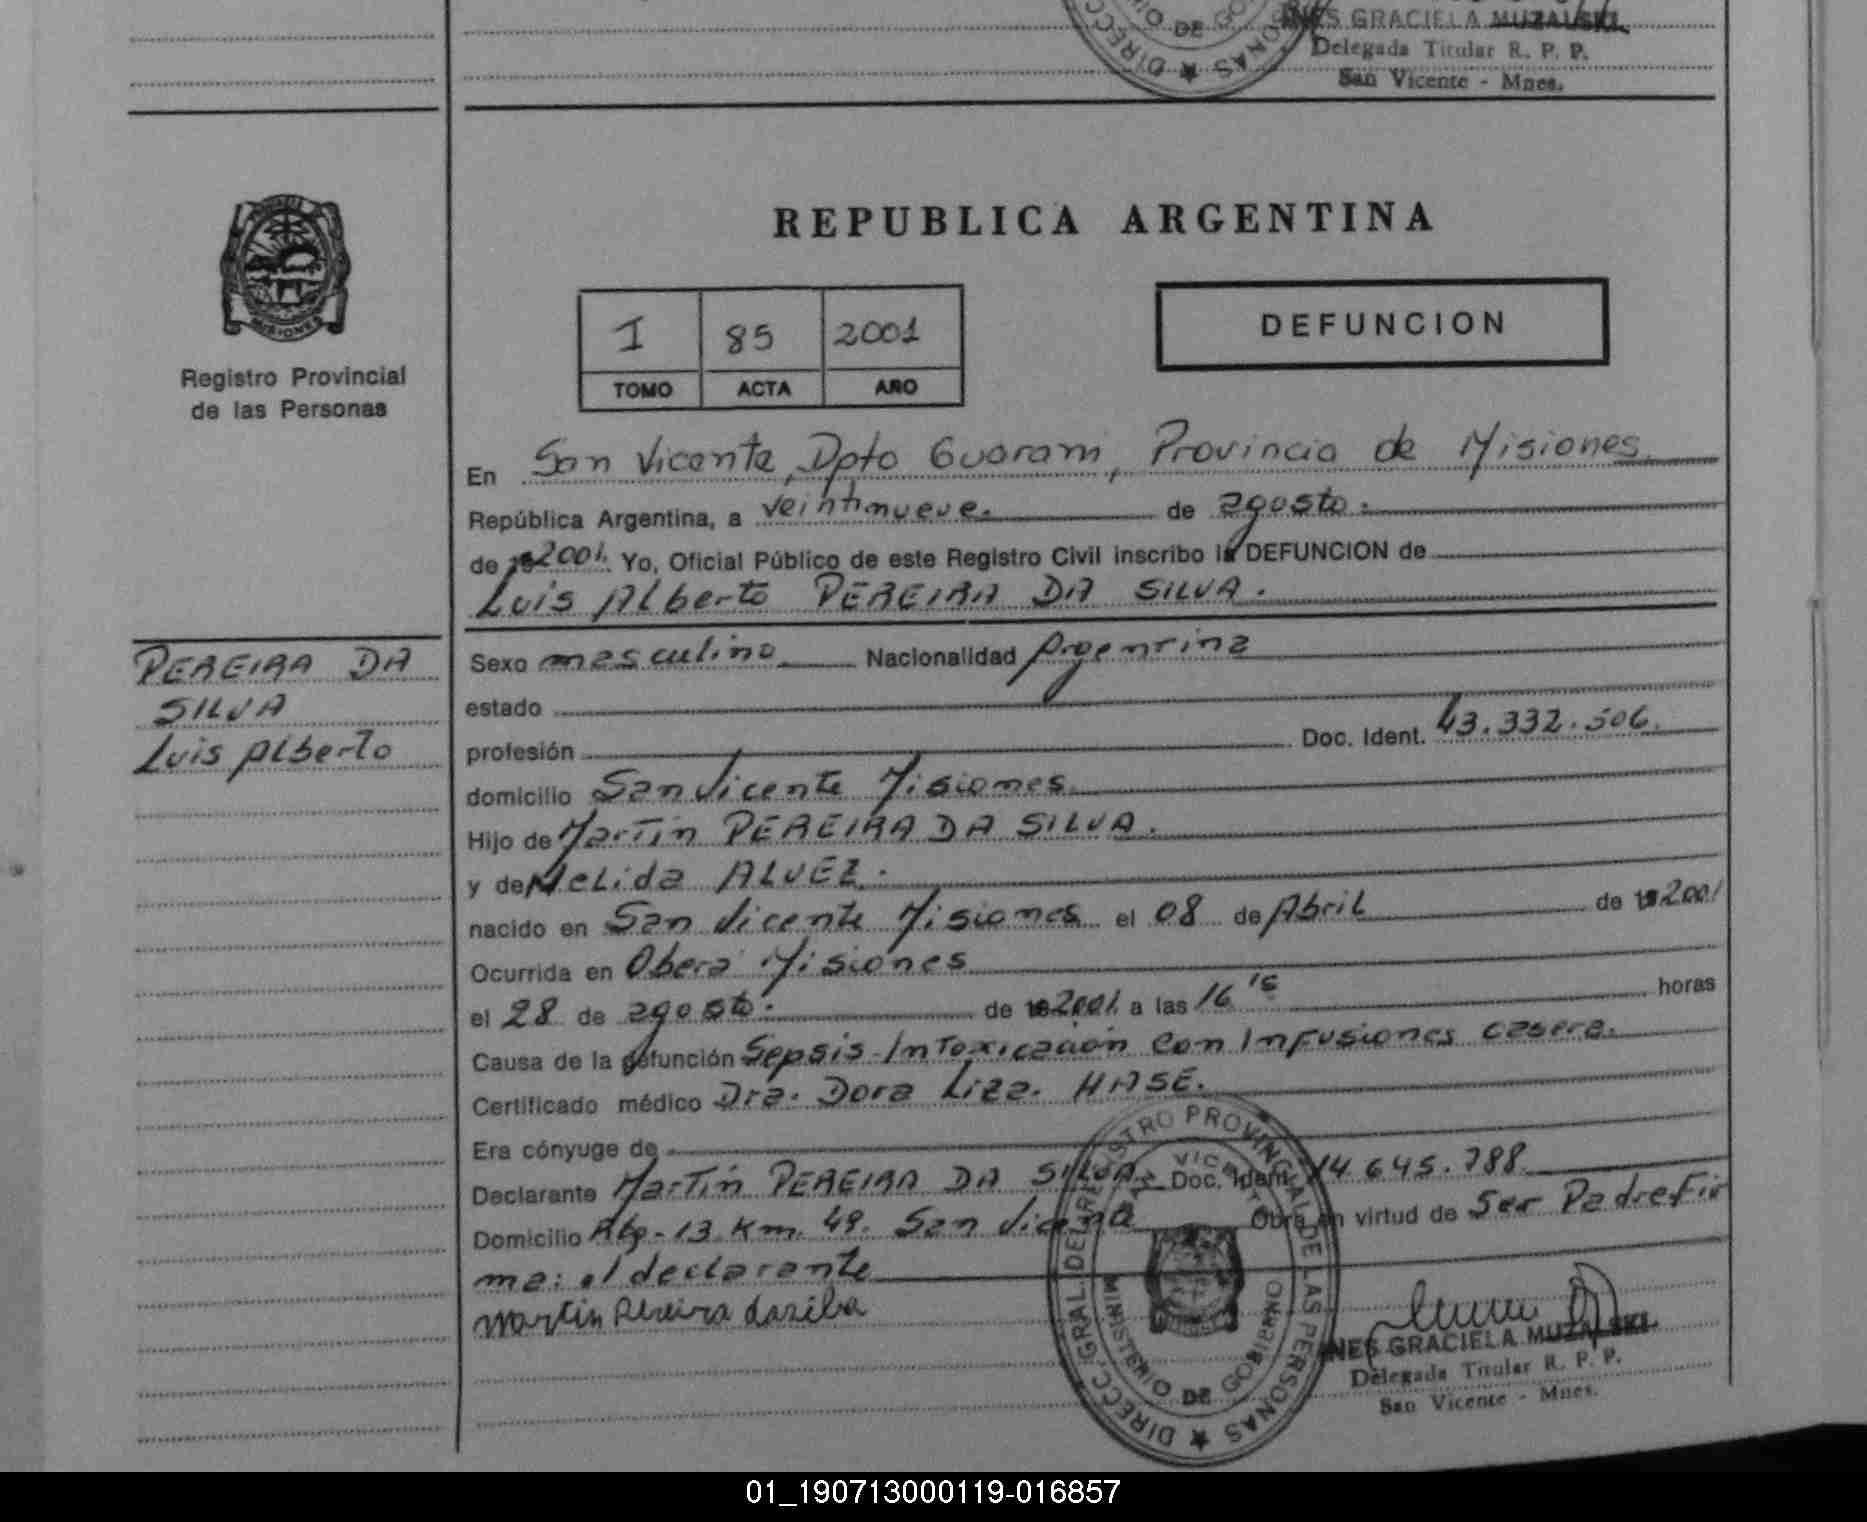 INES GRACIELA MUZALSKI
Delegada Titular R. P. P.
San Vicente - Mnes.
DE
DIRECC
ONAS
REPUBLICA ARGENTINA
DEFUNCION
I 85 2001
TOMO ACTA AÑO
MISIONES
Registro Provincial
de las Personas
En San Vicente, Dpto Guarani, Provincia de Misiones.
República Argentina, a veintinueve. de agosto.
de 19 2001. Yo, Oficial Público de este Registro Civil inscribo la DEFUNCION de
Luis Alberto PEREIRA DA SILVA.
PEREIRA DA
SILVA
Luis Alberto
Sexo masculino Nacionalidad Argentina
estado
profesión Doc. Ident. 43.332.506.
domicilio San Vicente Misiones.
Hijo de Martín PEREIRA DA SILVA.
y de Nelida ALVEZ.
nacido en San Vicente Misiones el 08 de Abril de 19 2001
Ocurrida en Oberá Misiones
el 28 de agosto. de 19 2001. a las 16 15 horas
Causa de la defunción Sepsis-Intoxicación con Infusiones casera.
Certificado médico Dra. Dora Liza. HASE.
Era cónyuge de
Declarante Martín PEREIRA DA SILVA Doc. Ident. 14.645.788.
Domicilio km. 49. San Vicente Obra en virtud de Ser Padre Fir
ma: el declarante
Martin Pereira dasilva
DIRECC. GRAL. DEL REGISTRO PROVINCIAL DE LAS PERSONAS
SAN VICENTE
MINISTERIO DE GOBIERNO
INES GRACIELA MUZALSKI
Delegada Titular R. P. P.
San Vicente - Mnes.
01_190713000119-016857